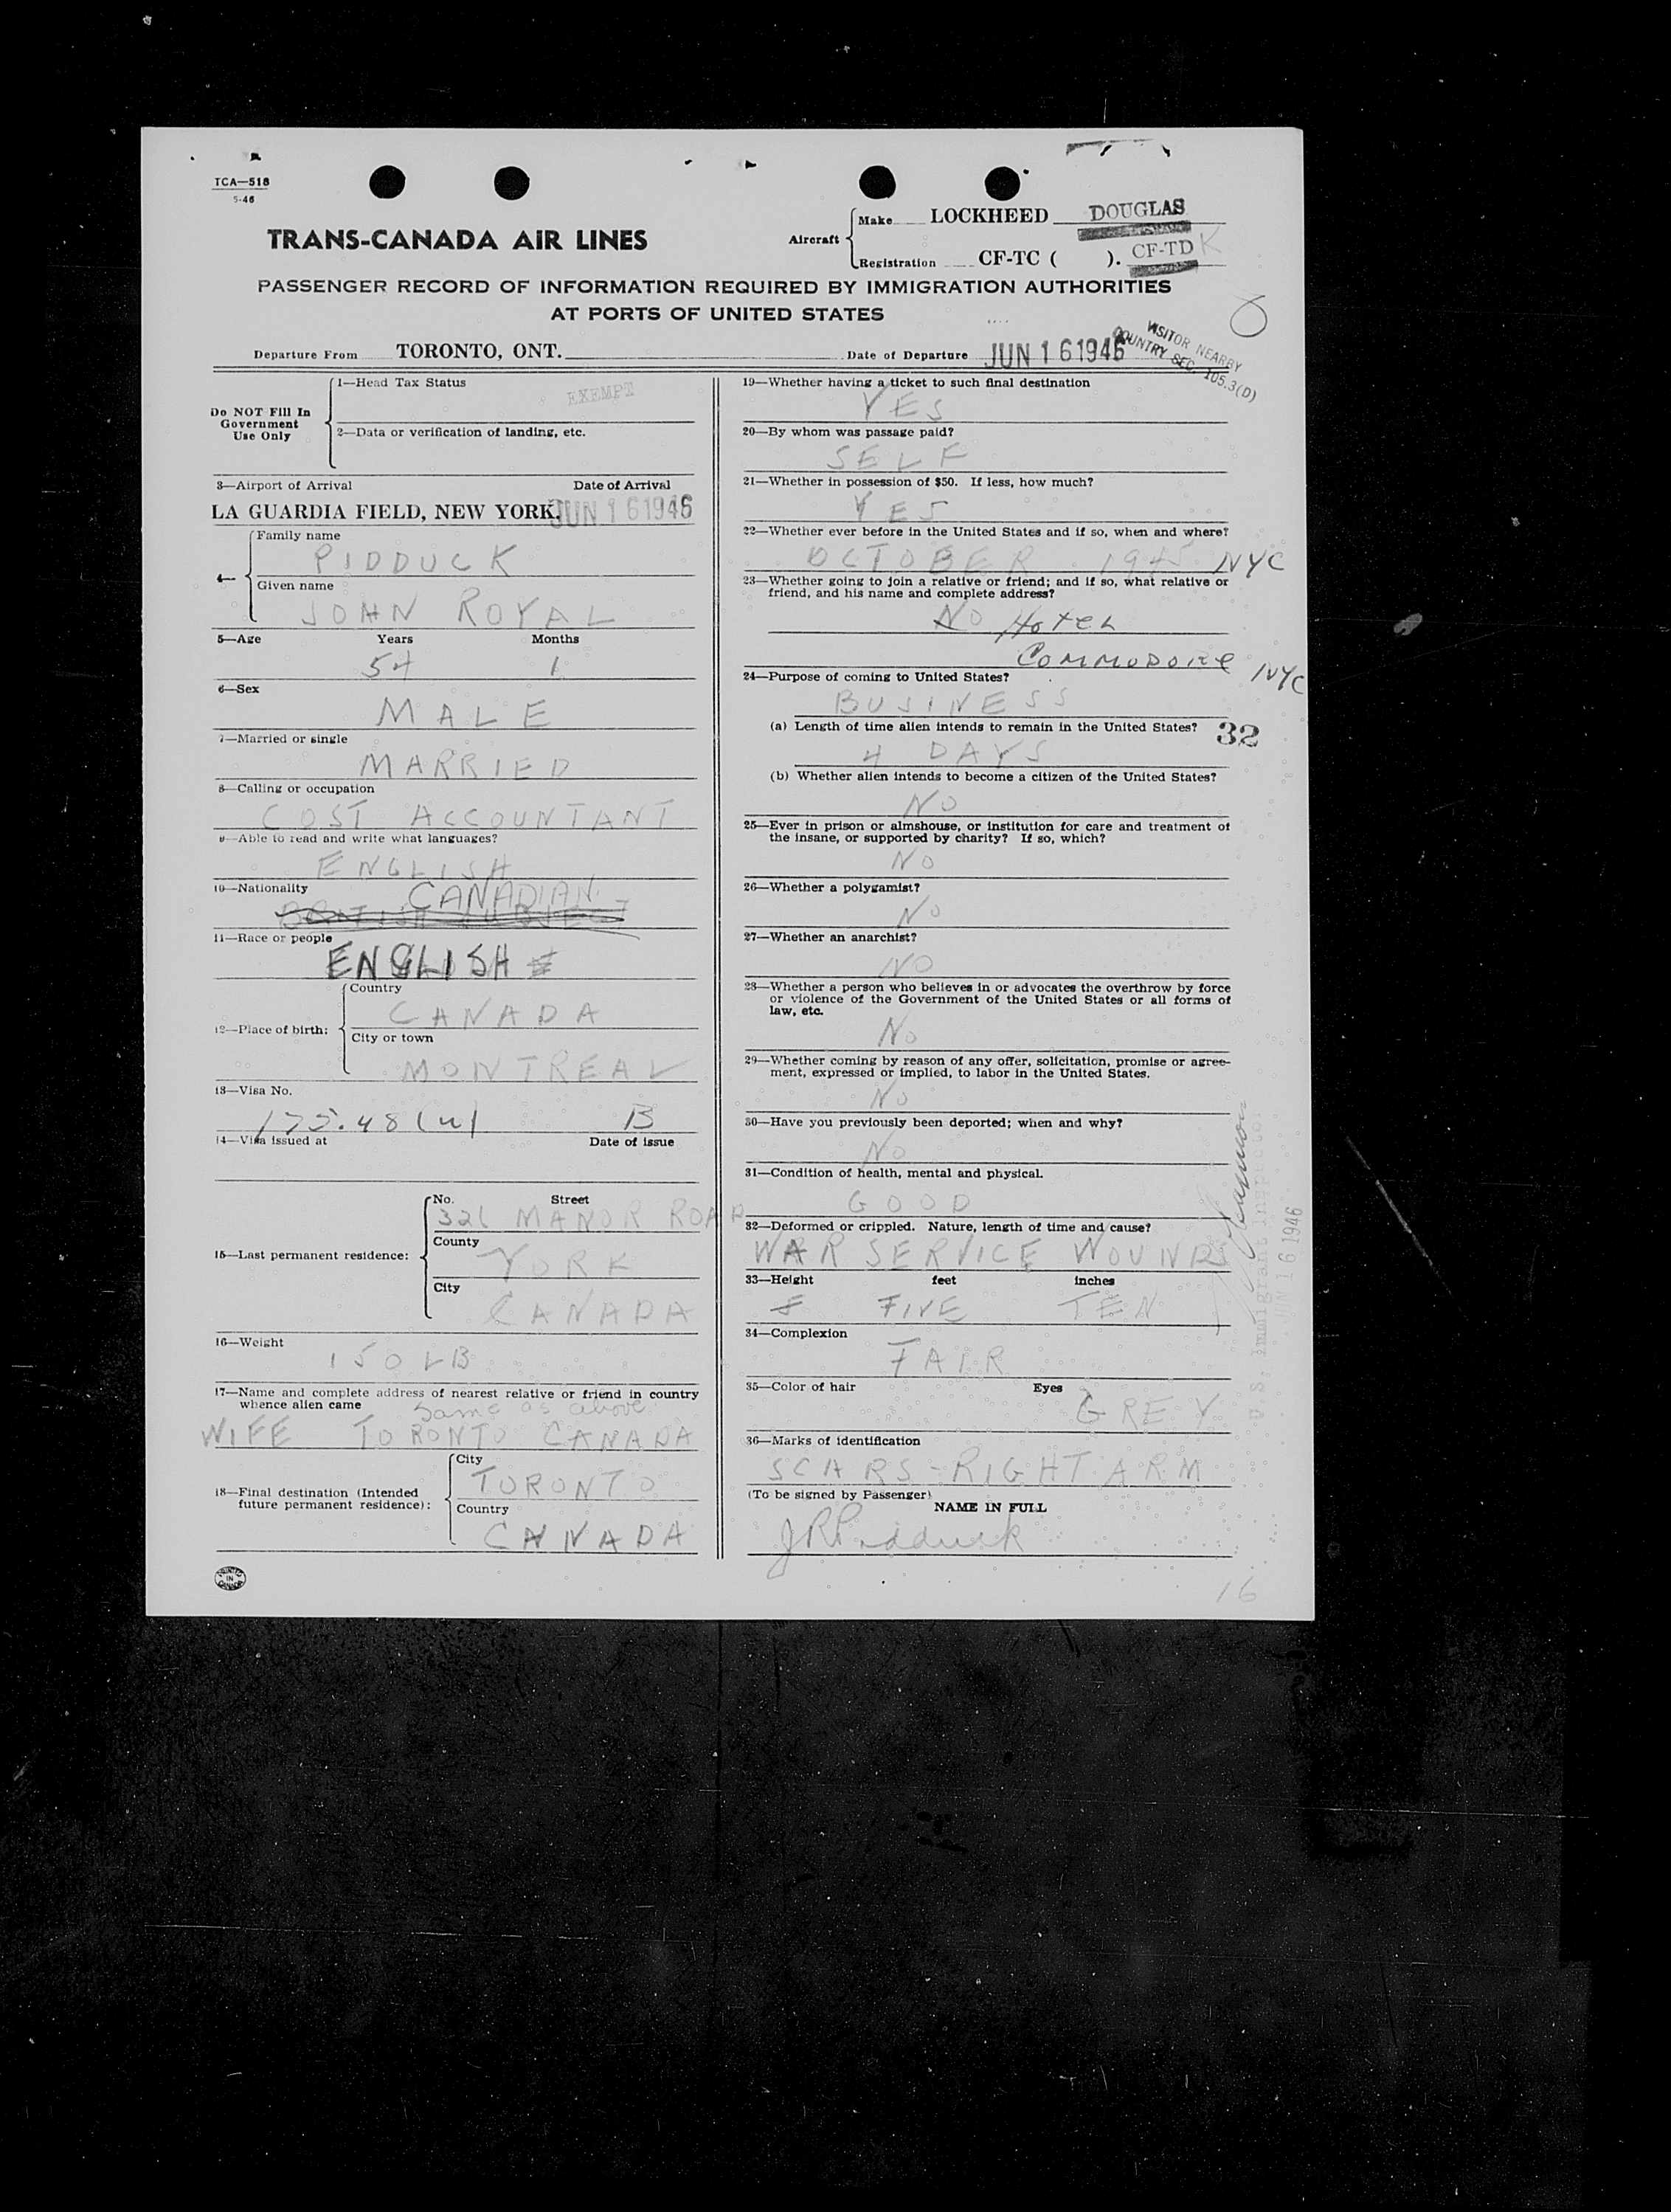 TCA—518
5-46
TRANS-CANADA AIR LINES
Aircraft
Make LOCKHEED DOUGLAS
Registration CF-TC ( ). CF-TD K
PASSENGER RECORD OF INFORMATION REQUIRED BY IMMIGRATION AUTHORITIES
AT PORTS OF UNITED STATES
VISITOR NEARBY
COUNTRY SEC. 105.3(D)
Departure From TORONTO, ONT. Date of Departure JUN 16 1946
Do NOT Fill In
Government
Use Only
1—Head Tax Status
EXEMPT
2—Data or verification of landing, etc.
3—Airport of Arrival Date of Arrival
LA GUARDIA FIELD, NEW YORK, JUN 16 1946
4—
Family name
PIDDUCK
Given name
JOHN ROYAL
5—Age Years Months
54 1
6—Sex
MALE
7—Married or single
MARRIED
8—Calling or occupation
COST ACCOUNTANT
9—Able to read and write what languages?
ENGLISH
10—Nationality CANADIAN
BRITISH SUBJECT
11—Race or people
ENGLISH
12—Place of birth:
Country
CANADA
City or town
MONTREAL
13—Visa No.
B
14—Visa issued at Date of issue
15—Last permanent residence:
No. Street
321 MANOR ROAD
County
YORK
City
CANADA
16—Weight
150 LB
17—Name and complete address of nearest relative or friend in country
whence alien came Same as above
WIFE TORONTO CANADA
18—Final destination (Intended
future permanent residence):
City
TORONTO
Country
CANADA
PRINTED
IN
CANADA
19—Whether having a ticket to such final destination
YES
20—By whom was passage paid?
SELF
21—Whether in possession of $50. If less, how much?
YES
22—Whether ever before in the United States and if so, when and where?
OCTOBER 1945 NYC
23—Whether going to join a relative or friend; and if so, what relative or
friend, and his name and complete address?
NO Hotel
Commodore NYC
24—Purpose of coming to United States?
BUSINESS
(a) Length of time alien intends to remain in the United States? 32
4 DAYS
(b) Whether alien intends to become a citizen of the United States?
NO
25—Ever in prison or almshouse, or institution for care and treatment of
the insane, or supported by charity? If so, which?
NO
26—Whether a polygamist?
NO
27—Whether an anarchist?
NO
28—Whether a person who believes in or advocates the overthrow by force
or violence of the Government of the United States or all forms of
law, etc.
NO
29—Whether coming by reason of any offer, solicitation, promise or agree-
ment, expressed or implied, to labor in the United States.
NO
30—Have you previously been deported; when and why?
NO
31—Condition of health, mental and physical.
GOOD
32—Deformed or crippled. Nature, length of time and cause?
WAR SERVICE WOUNDS
33—Height feet inches
FIVE TEN
34—Complexion
FAIR
35—Color of hair Eyes
GREY
36—Marks of identification
SCARS - RIGHT ARM
(To be signed by Passenger)
NAME IN FULL
JRPidduck
U.S. Immigrant Inspector
JUN 16 1946
16